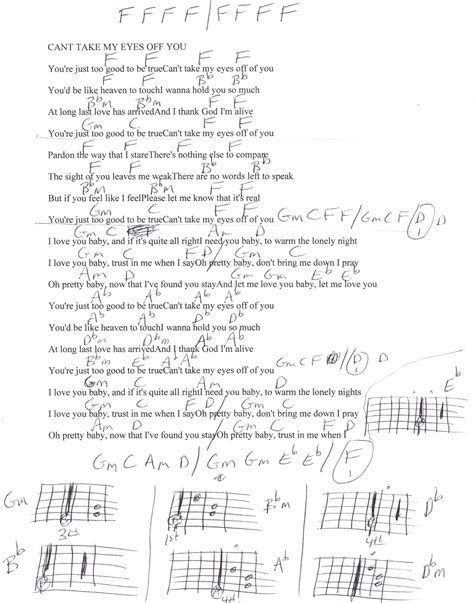 F F F F / F F F F
CANT TAKE MY EYES OFF YOU
F F F F
You're just too good to be trueCan't take my eyes off of you
F F Bb Bb
You'd be like heaven to touchI wanna hold you so much
Bbm Bbm F F
At long last love has arrivedAnd I thank God I'm alive
Gm C F F
You're just too good to be trueCan't take my eyes off of you
F F F F
Pardon the way that I stareThere's nothing else to compare
F F Bb Bb
The sight of you leaves me weakThere are no words left to speak
Bbm Bbm F F
But if you feel like I feelPlease let me know that it's real
Gm C F F
You're just too good to be trueCan't take my eyes off of you Gm C F F / Gm C F / D D
Gm C Am D
I love you baby, and if it's quite all rightI need you baby, to warm the lonely night
Gm C F D /Gm C
I love you baby, trust in me when I sayOh pretty baby, don't bring me down I pray
Am D Gm Gm Eb Eb
Oh pretty baby, now that I've found you stayAnd let me love you baby, let me love you
Ab Ab Ab Ab
You're just too good to be trueCan't take my eyes off of you
Ab Ab Db Db
You'd be like heaven to touchI wanna hold you so much
Dbm Dbm Ab Ab
At long last love has arrivedAnd I thank God I'm alive
Bbm Eb Ab Ab
You're just too good to be trueCan't take my eyes off of you Gm C F / D D
Gm C Am D
I love you baby, and if it's quite all rightI need you baby, to warm the lonely nights
Gm C F D / Gm C
I love you baby, trust in me when I sayOh pretty baby, don't bring me down I pray
Am D Gm C F
Oh pretty baby, now that I've found you stayOh pretty baby, trust in me when I
Eb
Gm C Am D / Gm Gm Eb Eb / F
Gm 3rd
1st Bbm
4th Db
Bb
4th Ab
Dbm